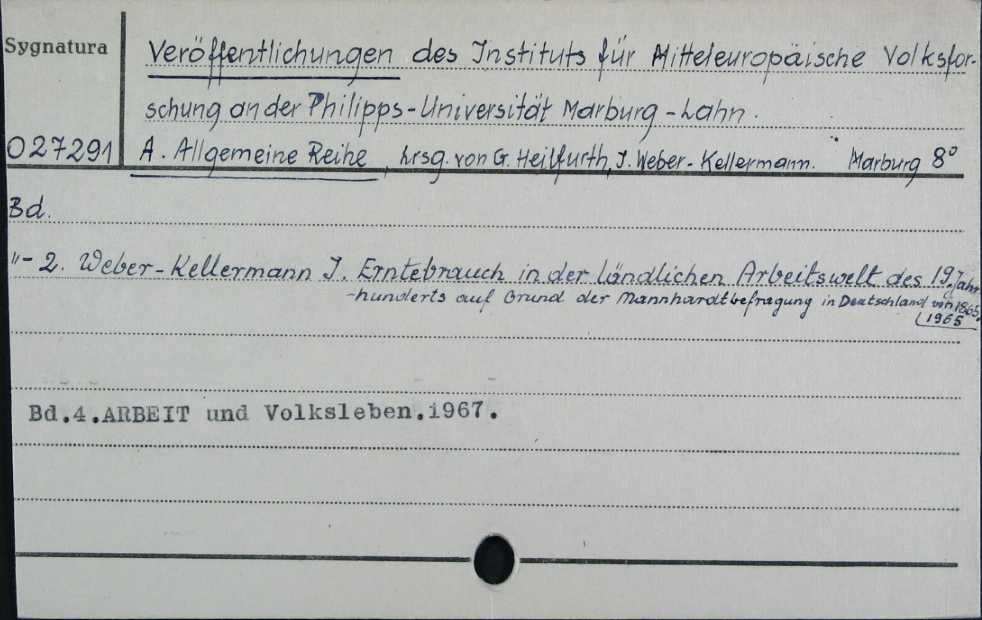 Sygnatura
Veröffentlichungen des Instituts für Mitteleuropäische Volksfor-
schung an der Philipps-Universität Marburg-Lahn.
027291
A. Allgemeine Reihe, hrsg. von G. Heilfurth, I. Weber-Kellermann. Marburg 8°
Bd.
"- 2. Weber-Kellermann I. Erntebrauch in der ländlichen Arbeitswelt des 19. Jahr-
-hunderts auf Grund der Mannhardtbefragung in Deutschland von 1865.
1965
Bd.4.ARBEIT und Volksleben.1967.